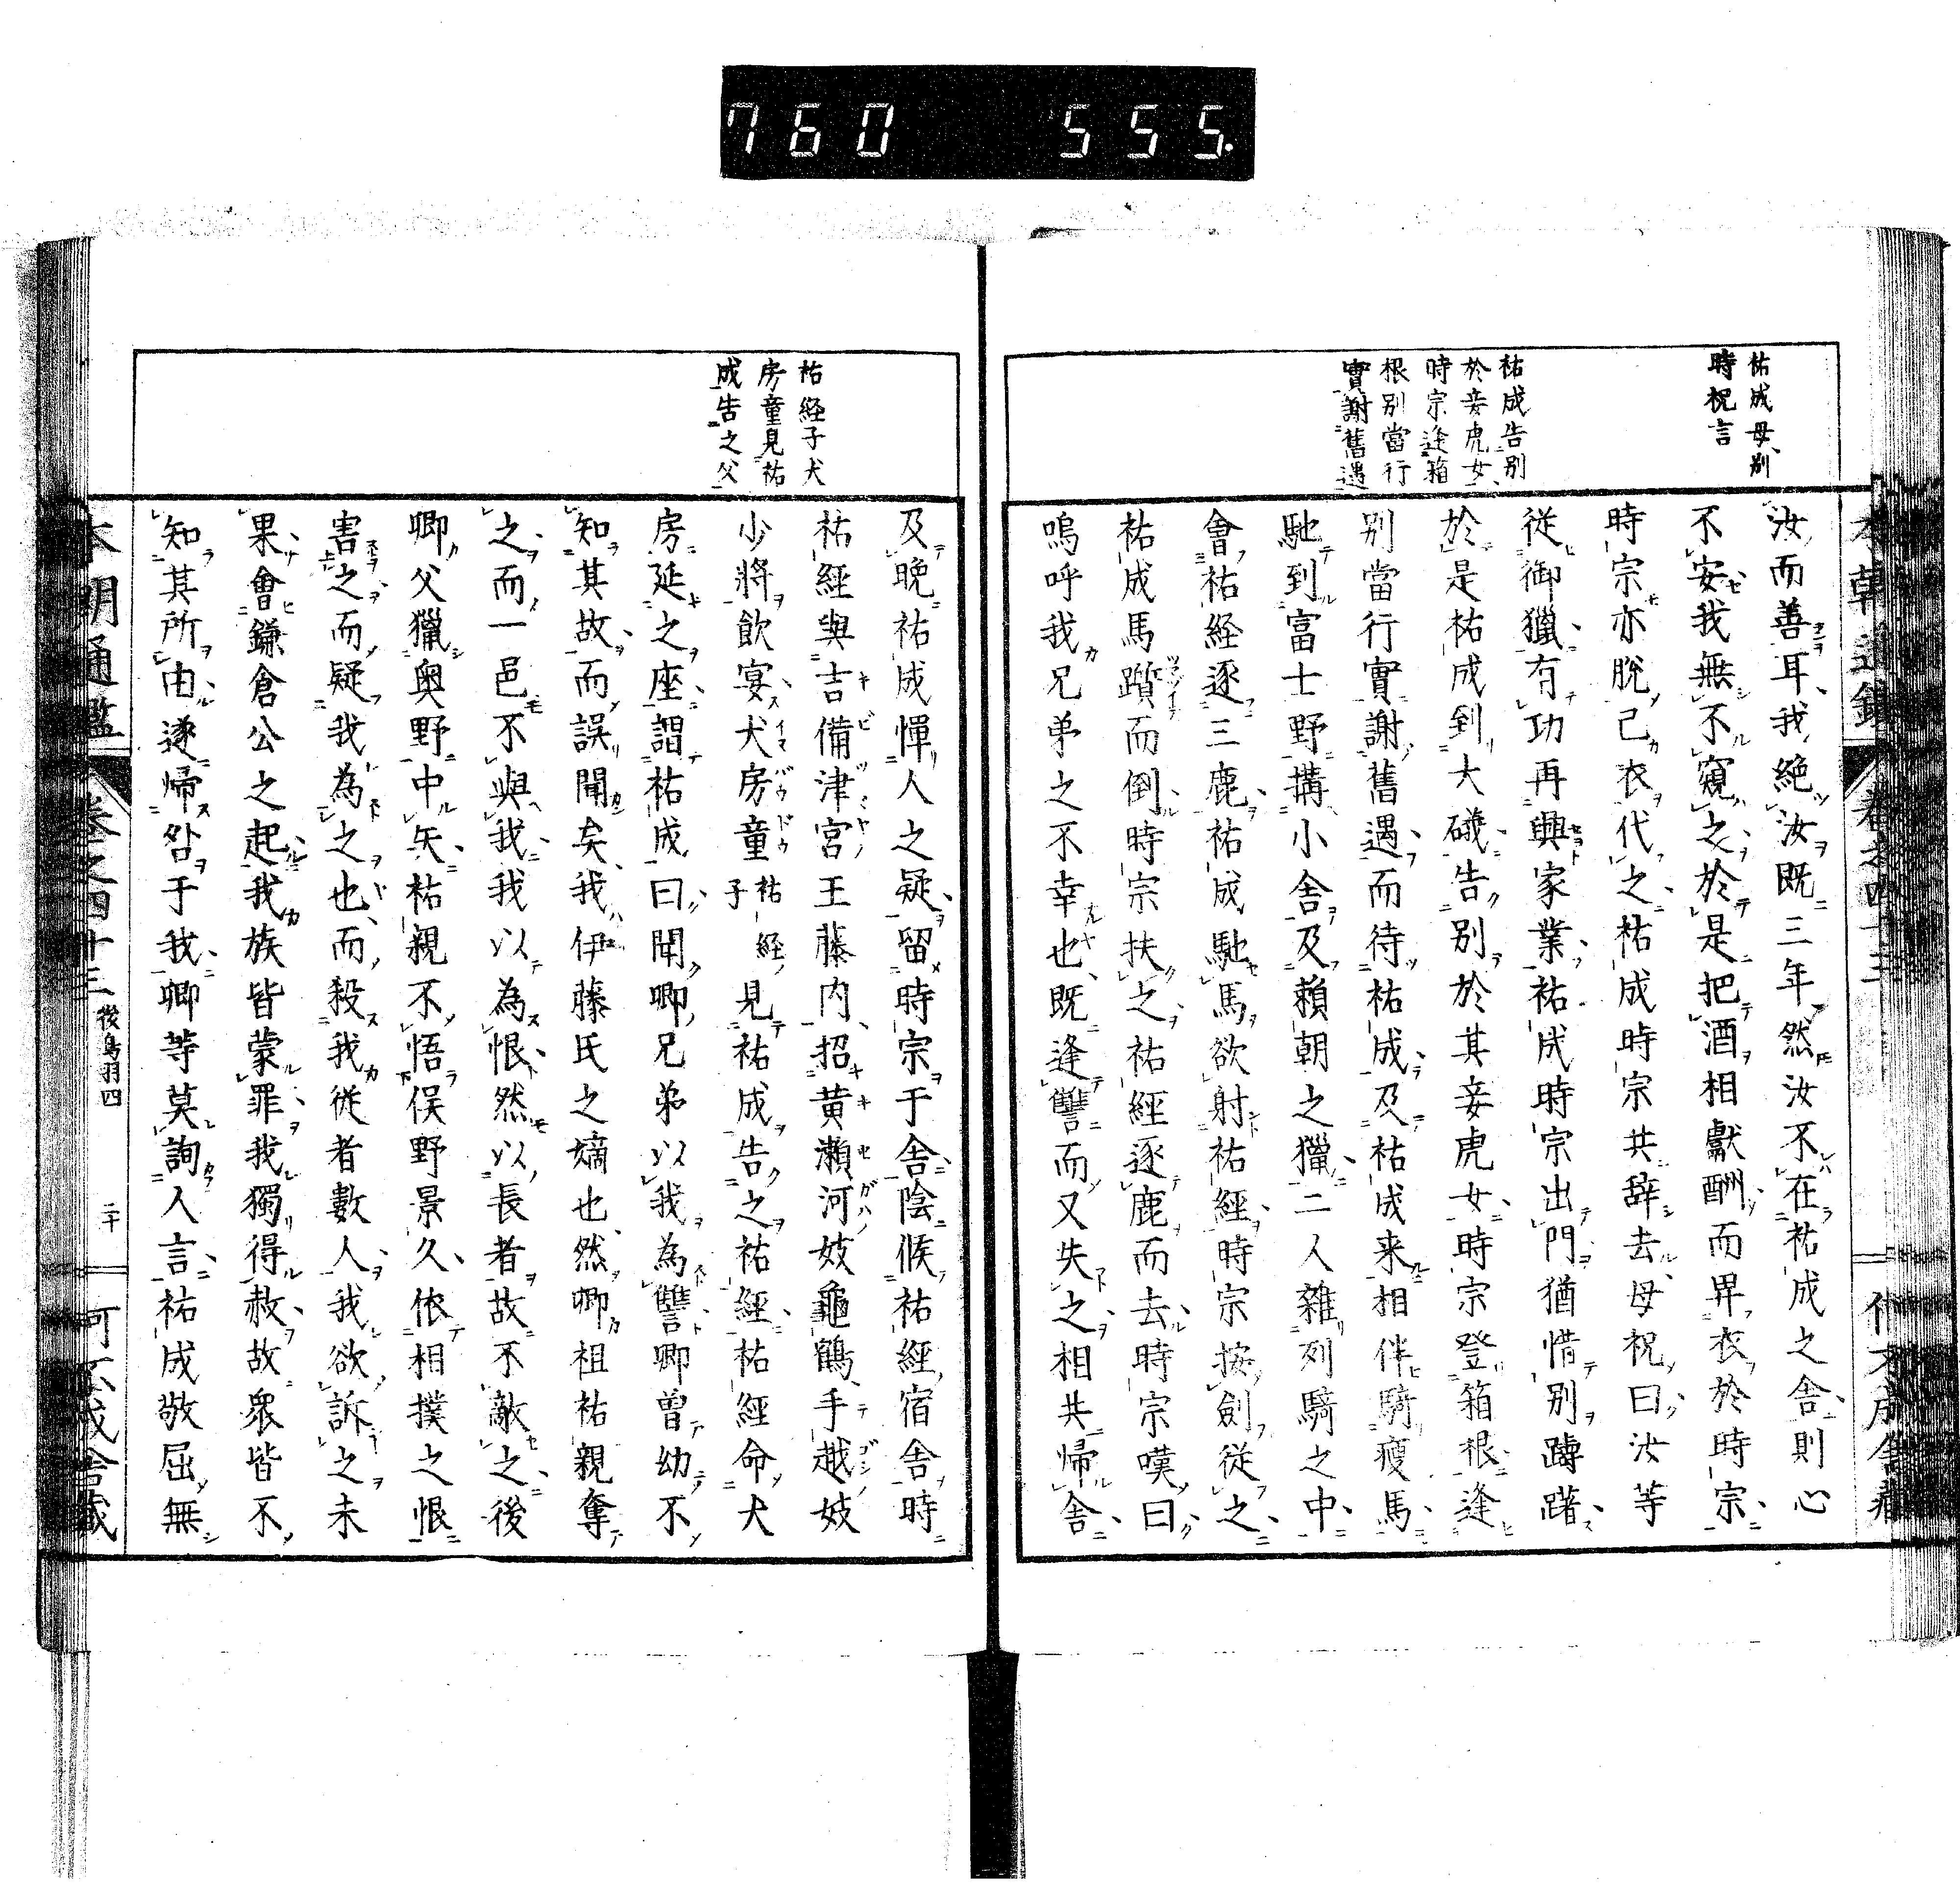 760 555.
祐成母、別
時祝言
祐成告別
於妾虎女
時宗逢箱
根別當行
實謝舊遇
汝而善耳我絶汝既三年然汝不在祐成之舎則心
不安我無不窺之於是把酒相獻酬而畀衣於時宗
時宗亦脱己衣代之祐成時宗共辞去母祝曰汝等
従御獵有功再興家業祐成時宗出門猶惜別躊躇
於是祐成到大磯告別於其妾虎女時宗登箱根逢
別當行實謝舊遇而待祐成及祐成来相伴騎痩馬
馳到富士野搆小舎及頼朝之獵二人雜列騎之中
會祐経逐三鹿祐成馳馬欲射祐經時宗按劍従之
祐成馬躓而倒時宗扶之祐經逐鹿而去時宗嘆曰
嗚呼我兄弟之不幸也既逢讐而又失之相共帰舎
祐経子犬
房童見祐
成告之父
及晩祐成憚人之疑留時宗于舎陰候祐經宿舎時
祐經與吉備津宮王藤内招黄瀬河妓龜鶴手越妓
少將飲宴犬房童祐經子見祐成告之祐經祐經命犬
房延之座謂祐成曰聞卿兄弟以我為讐卿曽幼不
知其故而誤聞矣我伊藤氏之嫡也然卿祖祐親奪
之而一邑不與我我以為恨然以長者故不敵之後
卿父獵奥野中矢祐親不悟俣野景久依相撲之恨
害之而疑我為之也而殺我従者數人我欲訴之未
果會鎌倉公之起我族皆蒙罪我獨得赦故衆皆不
知其所由遂帰咎于我卿等莫詢人言祐成敬屈無
本朝通鑑 卷之四十三 後鳥羽四 二十